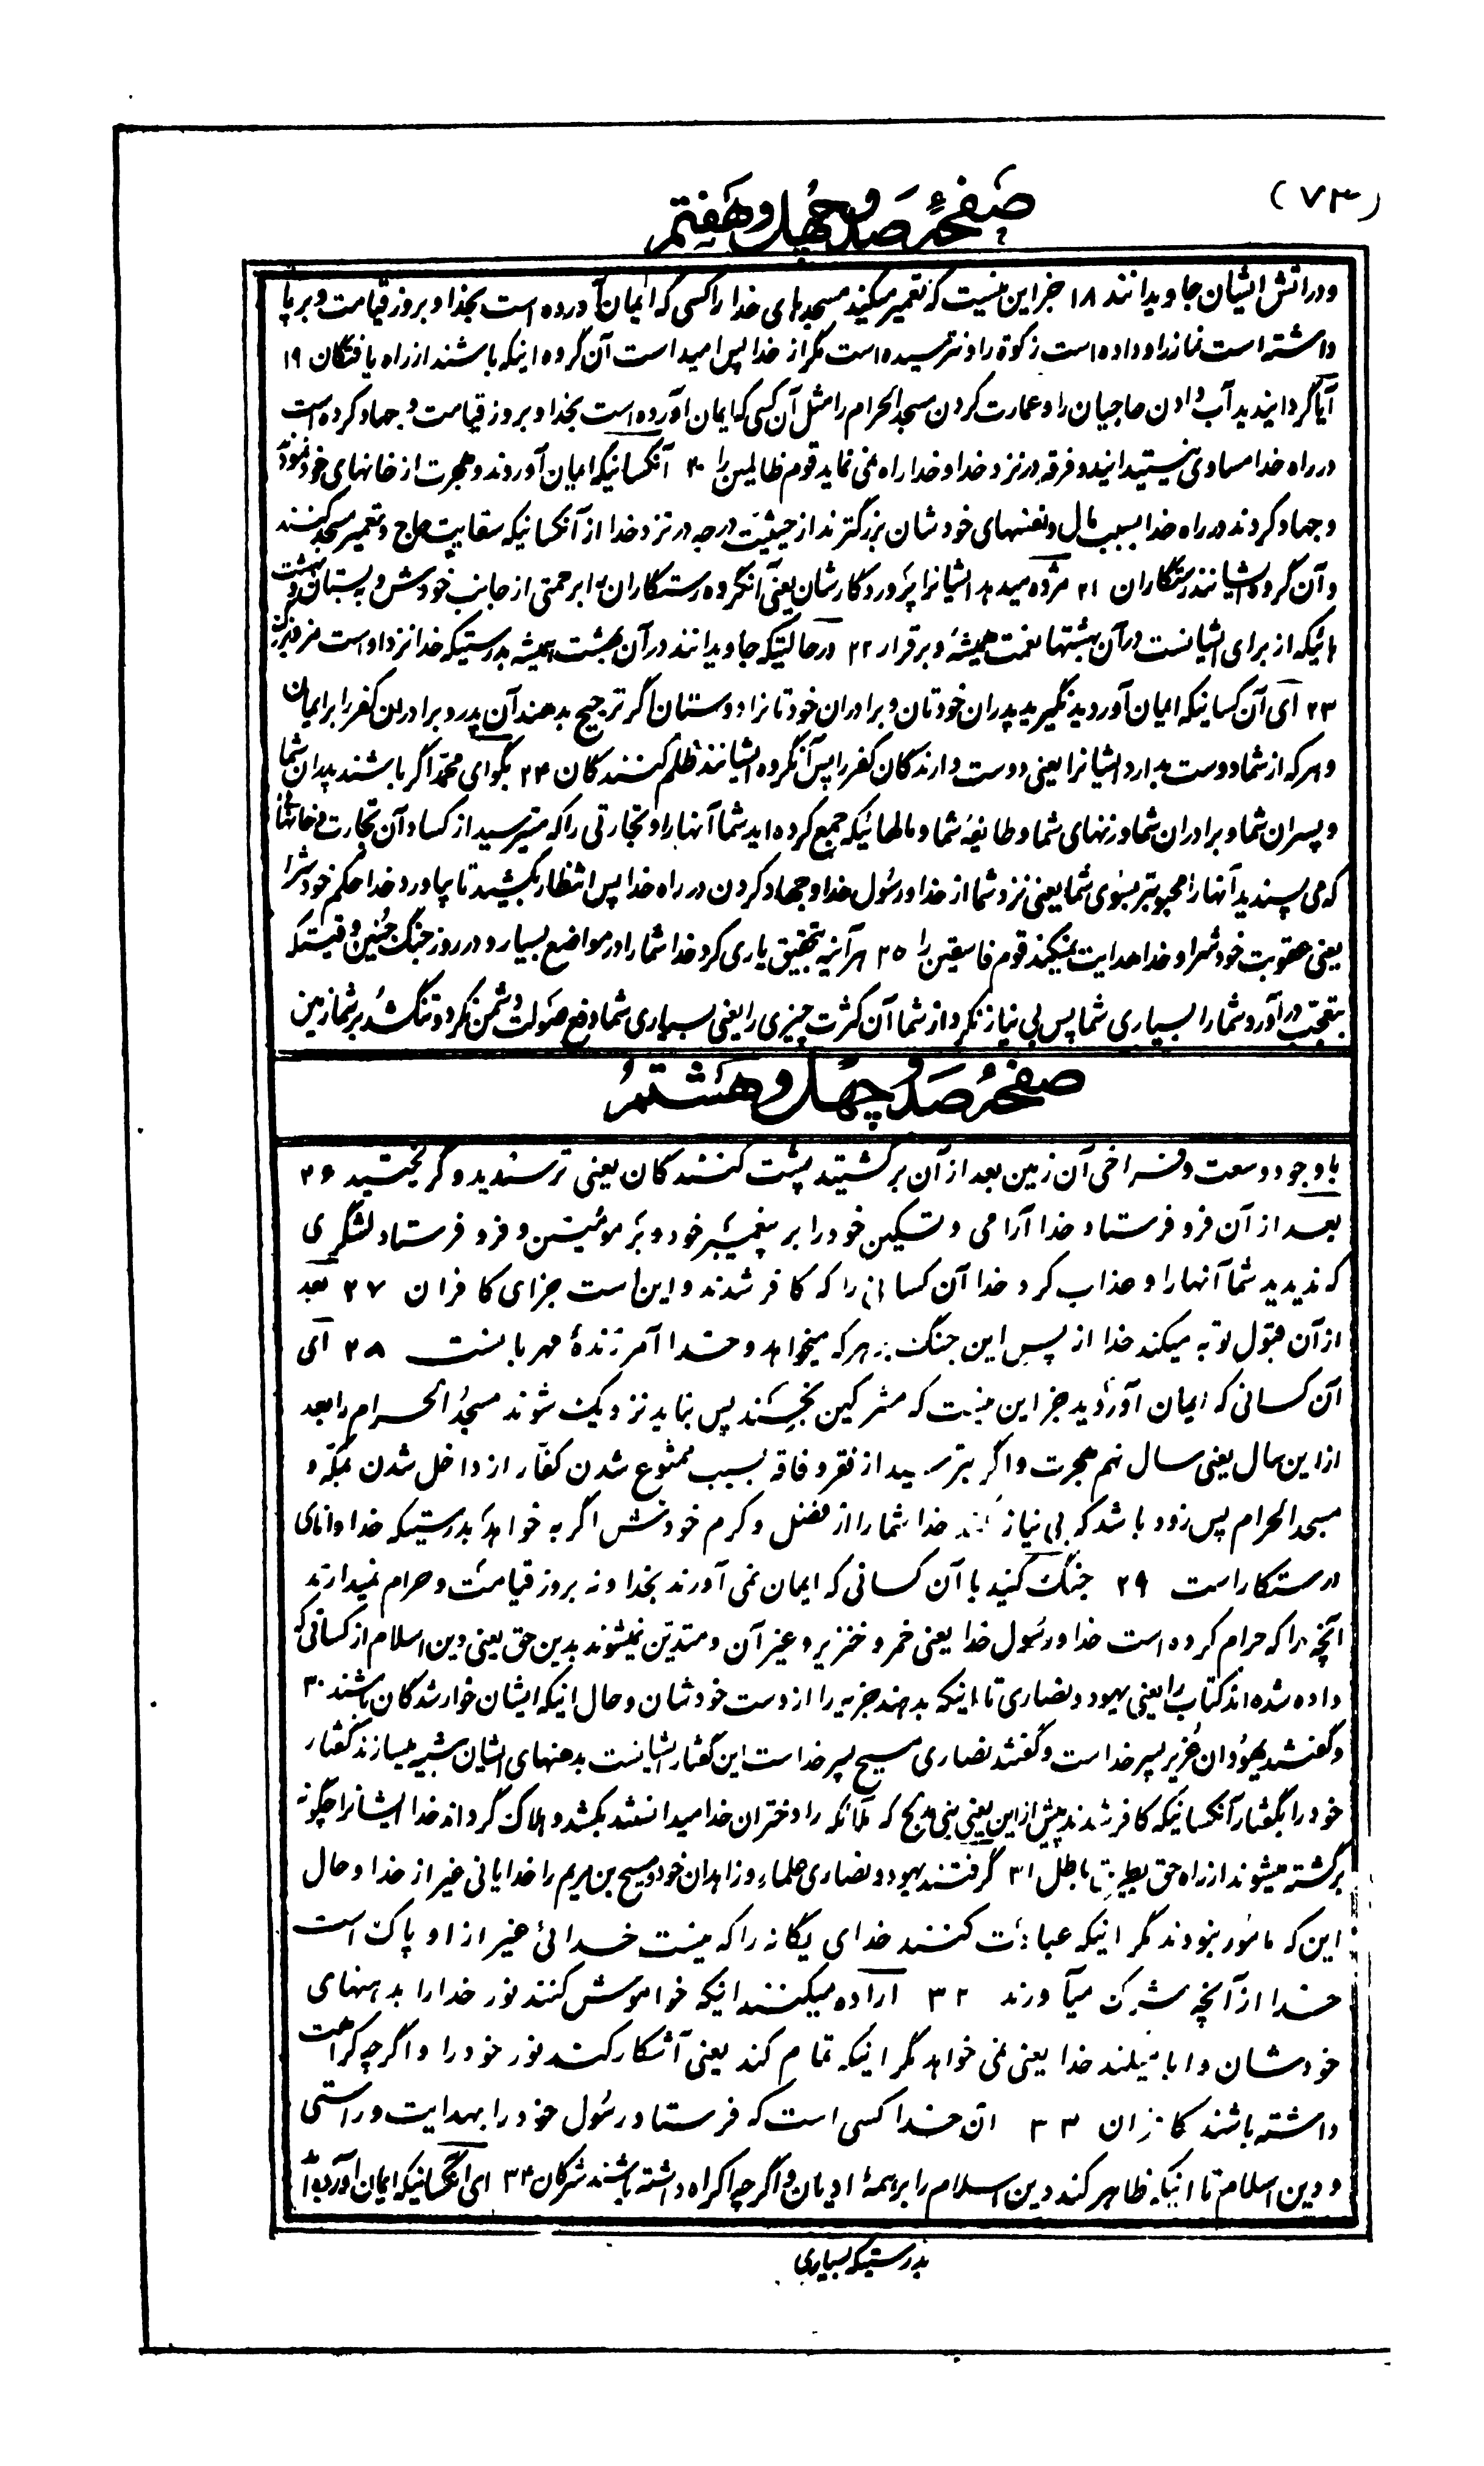 (۷۳)
صفحهٔ صد و چهل و هفتم
و در آتش ایشان جاویدانند ۱۸ جز این نیست که تعمیر میکند مسجدهای خدا را کسی که ایمان آورده است بخدا و بروز قیامت و بر پا
داشته است نماز را و داده است زکوة را و نترسیده است مگر از خدا پس امید است آن گروه اینکه باشند از راه یافتگان ۱۹
آیا گردانیدید آب دادن حاجیان را و عمارت کردن مسجد الحرام را مثل آن کسی که ایمان آورده است بخدا و بروز قیامت و جهاد کرده است
در راه خدا مساوی نیستید ایندو فرقه در نزد خدا و خدا راه نمی نماید قوم ظالمین را ۲۰ آنکسانیکه ایمان آوردند و هجرت از خانهای خود نمودند
و جهاد کردند در راه خدا بسبب مال و نفسهای خودشان بزرگترند از حیثیت درجه در نزد خدا از آنکسانیکه سقایت حاج و تعمیر مسجد کنند
و آن گروه ایشانند رستگاران ۲۱ مژده میدهد ایشانرا پروردگارشان یعنی آنگروه رستگاران را برحمتی از جانب خودش و به بستان بهشت
هائیکه از برای ایشانست در آن بهشتها نعمت همیشه و برقرار ۲۲ در حالتیکه جاویدانند در آن بهشت همیشه بدرستیکه خدا نزد اوست مزد بزرگ
۲۳ ای آن کسانیکه ایمان آوردید نگیرید پدران خودتان و برادران خودتانرا دوستان اگر ترجیح بدهند آن پدر و برادران کفر را بر ایمان
و هر که از شما دوست بدارد ایشانرا یعنی دوست دارندگان کفر را پس آنگروه ایشانند ظلم کنندگان ۲۴ بگو ای محمد اگر باشند پدران شما
و پسران شما و برادران شما و زنهای شما و طایفهٔ شما و مالهائیکه جمع کرده اید شما آنها را و تجارتی را که میترسید از کساد آن تجارت و خانهائی
که می پسندید آنها را محبوبتر بسوی شما یعنی نزد شما از خدا و رسول خدا و جهاد کردن در راه خدا پس انتظار بکشید تا بیاورد خدا حکم خودش را
یعنی عقوبت خودش را و خدا هدایت نمیکند قوم فاسقین را ۲۵ هر آینه بتحقیق یاری کرد خدا شما را در مواضع بسیار و در روز جنگ حنین وقتیکه
بتعجب در آورد شما را بسیاری شما پس بی نیاز نکرد از شما آن کثرت چیزی را یعنی بسیاری شما دفع صولت دشمن نکرد و تنگ شد بر شما زمین
صفحهٔ صد و چهل و هشتم
با وجود وسعت و فراخی آن زمین بعد از آن برگشتید پشت کنندگان یعنی ترسیدید و گریختید ۲۶
بعد از آن فرو فرستاد خدا آرامی و تسکین خود را بر پیغمبر خود و بر مومنین و فرو فرستاد لشگری
که ندیدید شما آنها را و عذاب کرد خدا آن کسانی را که کافر شدند و این است جزای کافران ۲۷ بعد
از آن قبول توبه میکند خدا از پس این جنگ بر هر که میخواهد و خدا آمرزندهٔ مهربانست ۲۸ ای
آن کسانی که ایمان آوردید جز این نیست که مشرکین نجسند پس نباید نزدیک شوند مسجد الحرام را بعد
از این سال یعنی سال نهم هجرت و اگر بترسید از فقر و فاقه بسبب ممنوع شدن کفار از داخل شدن بمکه و
مسجد الحرام پس زود باشد که بی نیاز کند خدا شما را از فضل و کرم خودش اگر به خواهد بدرستیکه خدا دانای
درستکار است ۲۹ جنگ کنید با آن کسانی که ایمان نمی آورند بخدا و نه بروز قیامت و حرام نمیدارند
آنچه را که حرام کرده است خدا و رسول خدا یعنی خمر و خنزیر و غیر آن و متدین نمیشوند بدین حق یعنی دین اسلام از کسانی که
داده شده اند کتاب را یعنی یهود و نصاری تا اینکه بدهند جزیه را از دست خودشان و حال اینکه ایشان خوار شدگان باشند ۳۰
و گفتند یهودان عزیر پسر خداست و گفتند نصاری مسیح پسر خداست این گفتار ایشانست بدهنهای ایشان شبیه میسازند گفتار
خود را بگفتار آنکسانیکه کافر شدند پیش از این یعنی بنی مدلج که ملائکه را دختران خدا میدانستند بکشد و هلاک گرداند خدا ایشانرا چگونه
برگشته میشوند از راه حق بطریق باطل ۳۱ گرفتند یهود و نصاری علماء و زاهدان خود و مسیح بن مریم را خدایانی غیر از خدا و حال
این که مامور نبودند مگر اینکه عبادت کنند خدای یگانه را که نیست خدائی غیر از او پاک است
خدا از آنچه شرک میآورند ۳۲ اراده میکنند اینکه خواموش کنند نور خدا را بدهنهای
خودشان و ابا میکند خدا یعنی نمی خواهد مگر اینکه تمام کند یعنی آشکار کند نور خود را و اگر چه کراهت
داشته باشند کافران ۳۳ آن خدا کسی است که فرستاد رسول خود را بهدایت و راستی
و دین اسلام تا اینکه ظاهر کند دین اسلام را بر همهٔ ادیان و اگر چه اکراه داشته باشند مشرکان ۳۴ ای آنکسانیکه ایمان آورده اید
بدرستیکه بسیاری